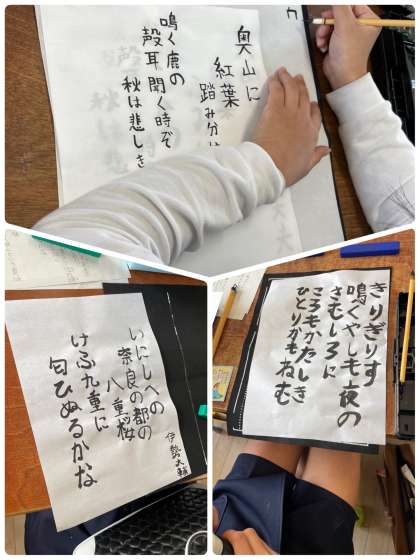 奥山に
紅葉
踏み分け
鳴く鹿の
聲聞く時ぞ
秋は悲しき
いにしへの
奈良の都の
八重桜
けふ九重に
匂ひぬるかな
伊勢大輔
きりぎりす
鳴くやしも夜の
さむしろに
ころもかたしき
ひとりかもねむ